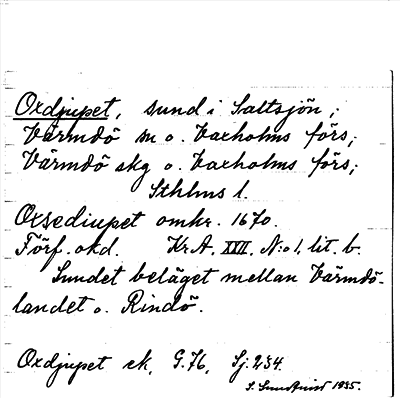 Oxdjupet, sund i Saltsjön;
Värmdö sn o. Vaxholms förs;
Värmdö skg o. Vaxholms förs;
Sthlms l.
Oxsediupet omkr. 1670.
Förf. okd. Kr.A. XXII, N:o 1, lit. b.
Sundet beläget mellan Värmdö-
landet o. Rindö.
Oxdjupet ek. G.76, Sj.234.
S. Sundqvist 1935.